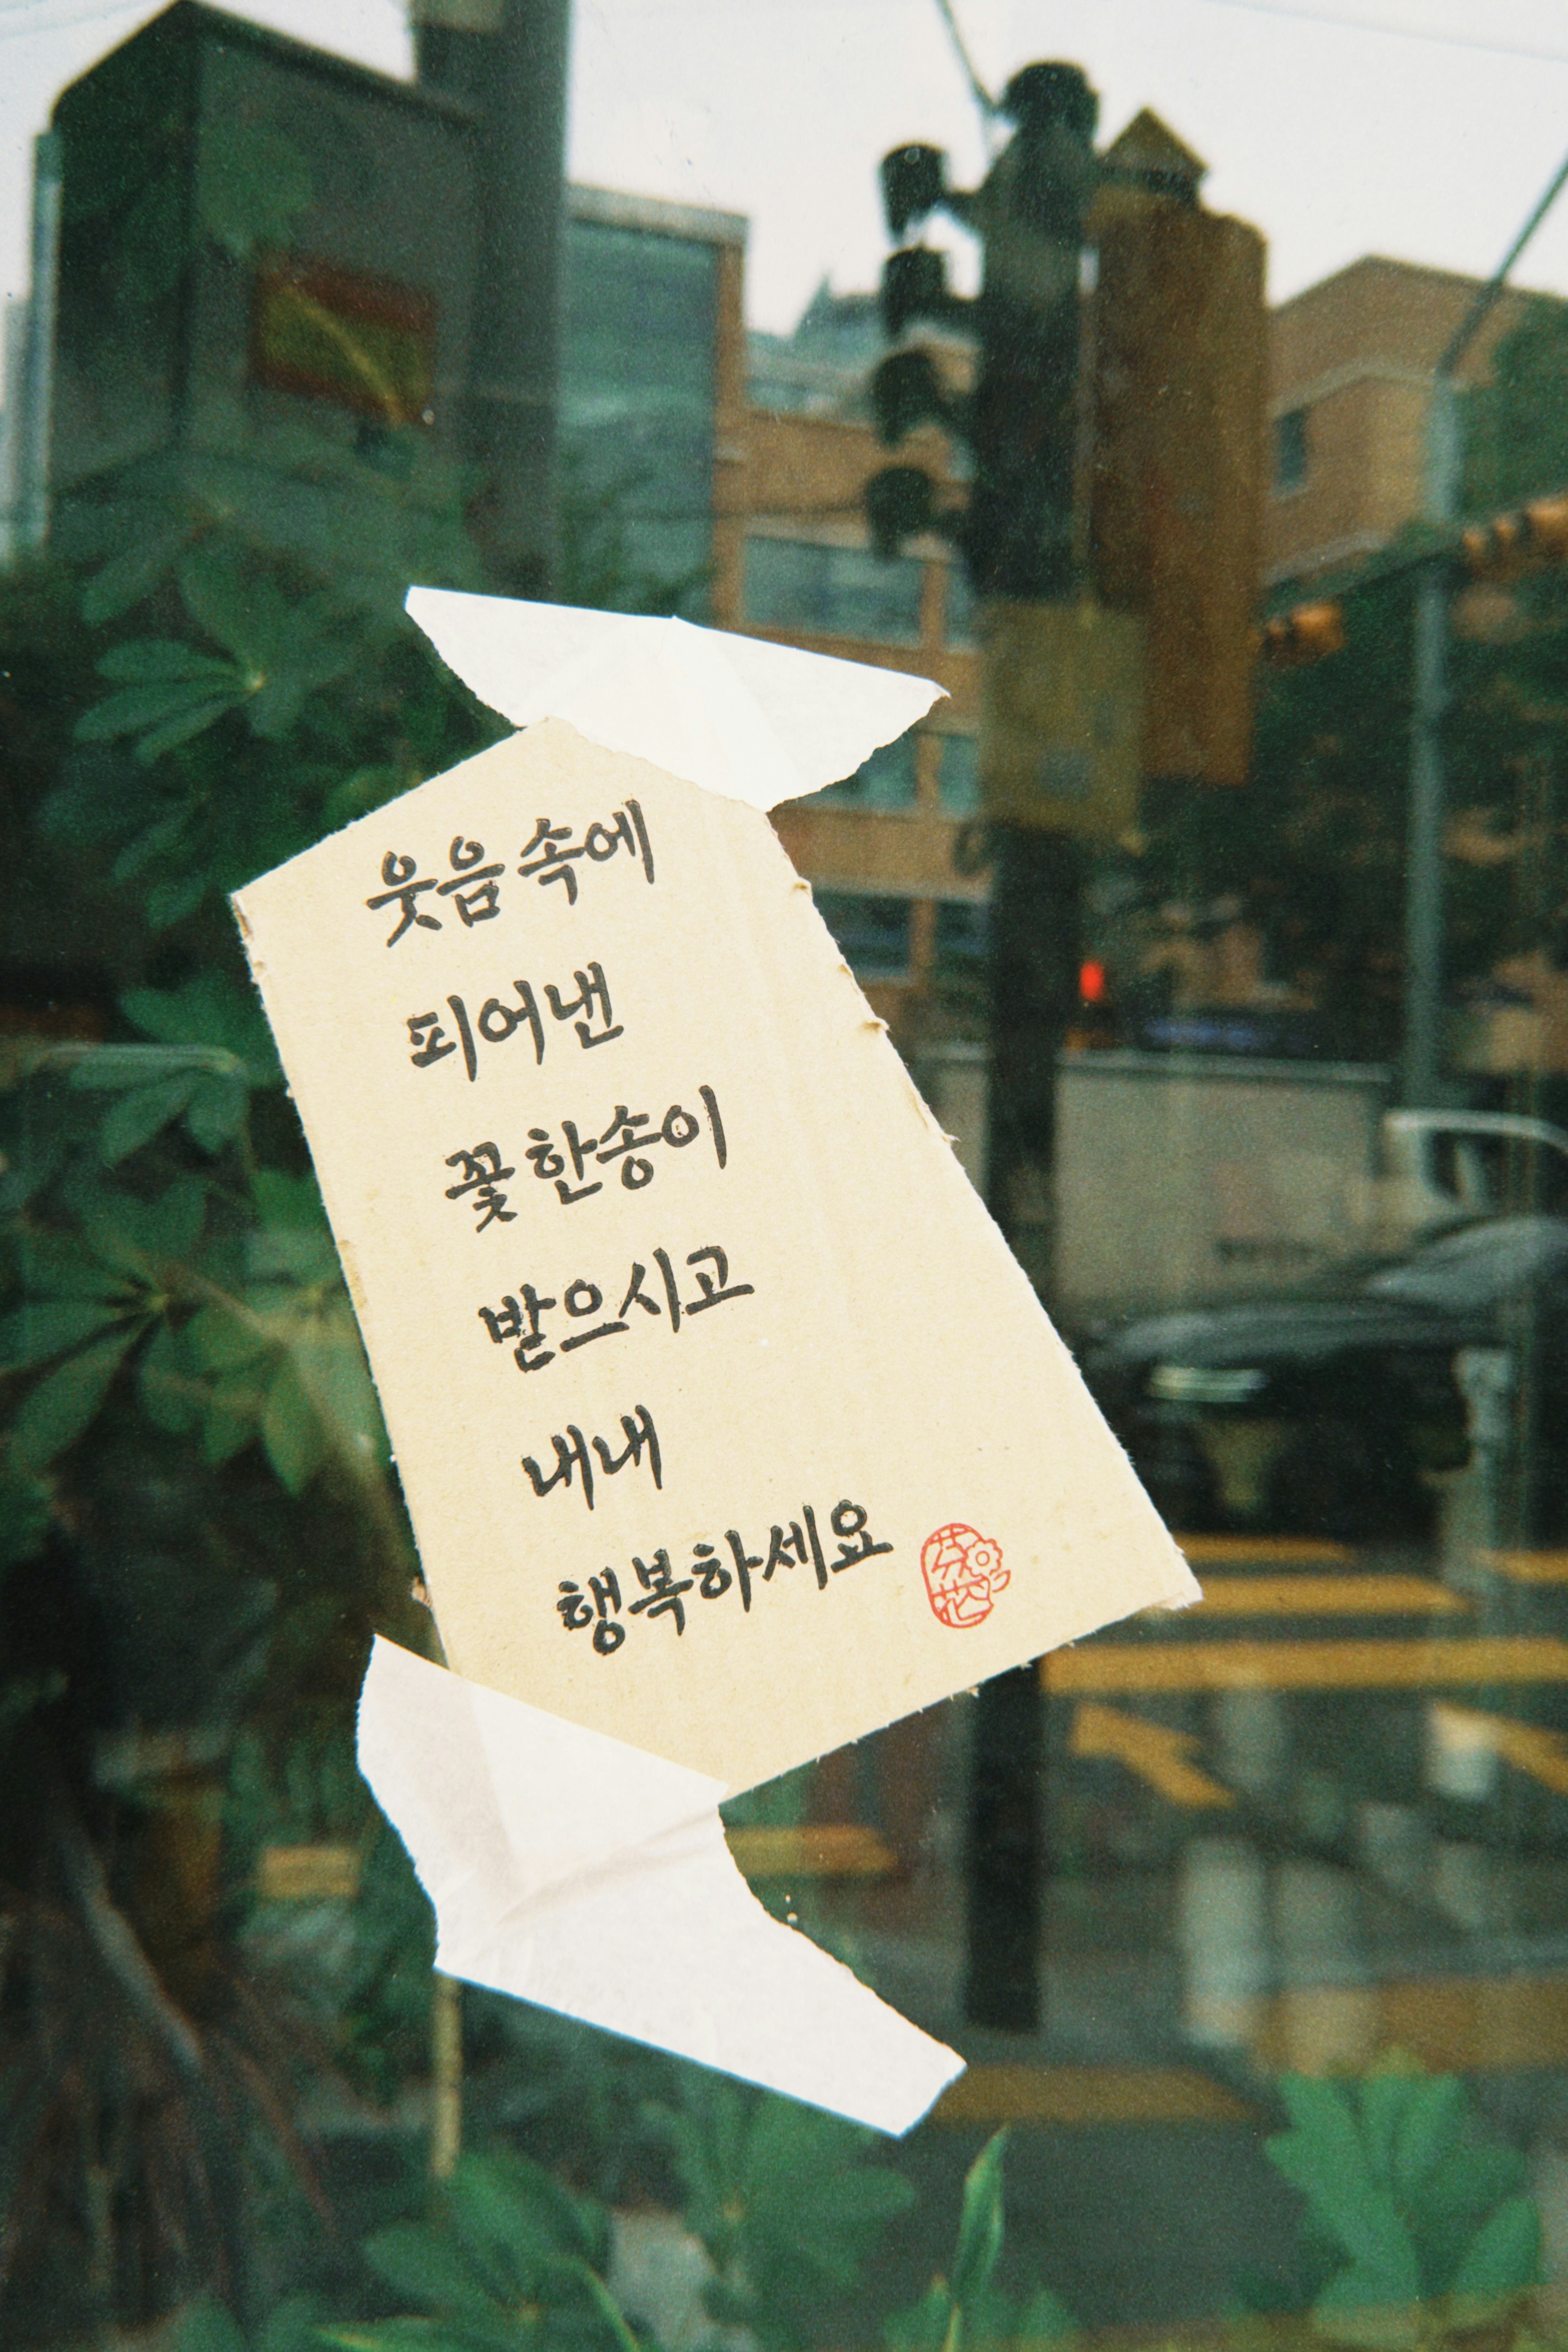 웃음 속에
피어낸
꽃 한송이
받으시고
내내
행복하세요